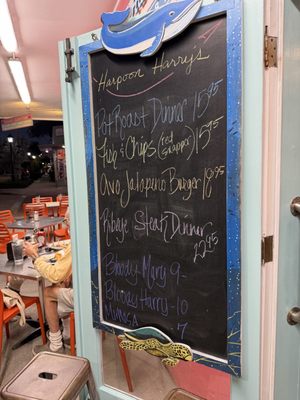 Harpoon Harry's
Pot Roast Dinner 15.95
Fish & Chips (red snapper) 15.95
Avo Jalapeno Burger 18.95
Ribeye Steak Dinner
22.95
Bloody Mary 9-
Bloody Harry-10
Mimosa - 7